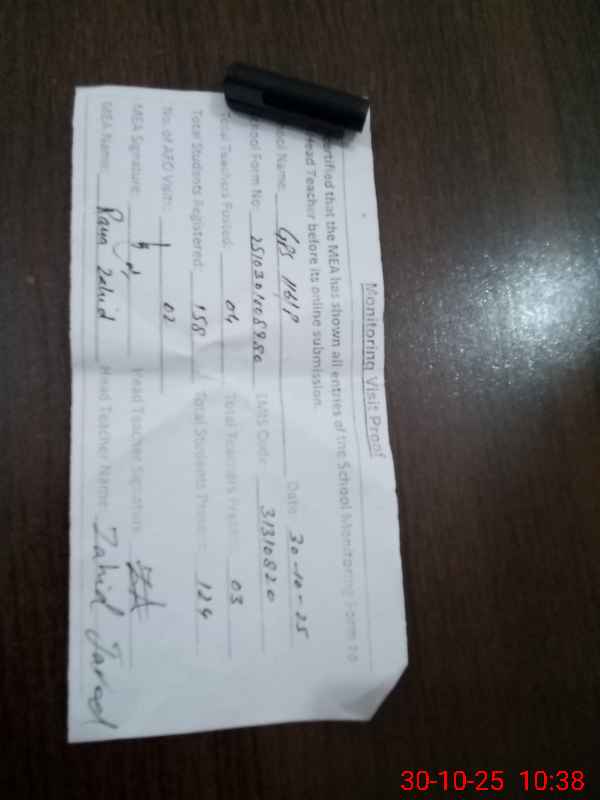 Monitoring Visit Proof
ertified that the MEA has shown all entries of the School Monitoring Form to
Head Teacher before its online submission.
ool Name: GPS 116/P Date 30-10-25
School Form No: EMIS Code: 31310820
Total Teachers Posted: 04 Total Teachers Present: 03
Total Students Registered: 158 Total Students Present: 124
No. of AEO Visits: 02
MEA Signature: Head Teacher Signature:
MEA Name: Rana Zahid Head Teacher Name: Zahid Javed
30-10-25 10:38